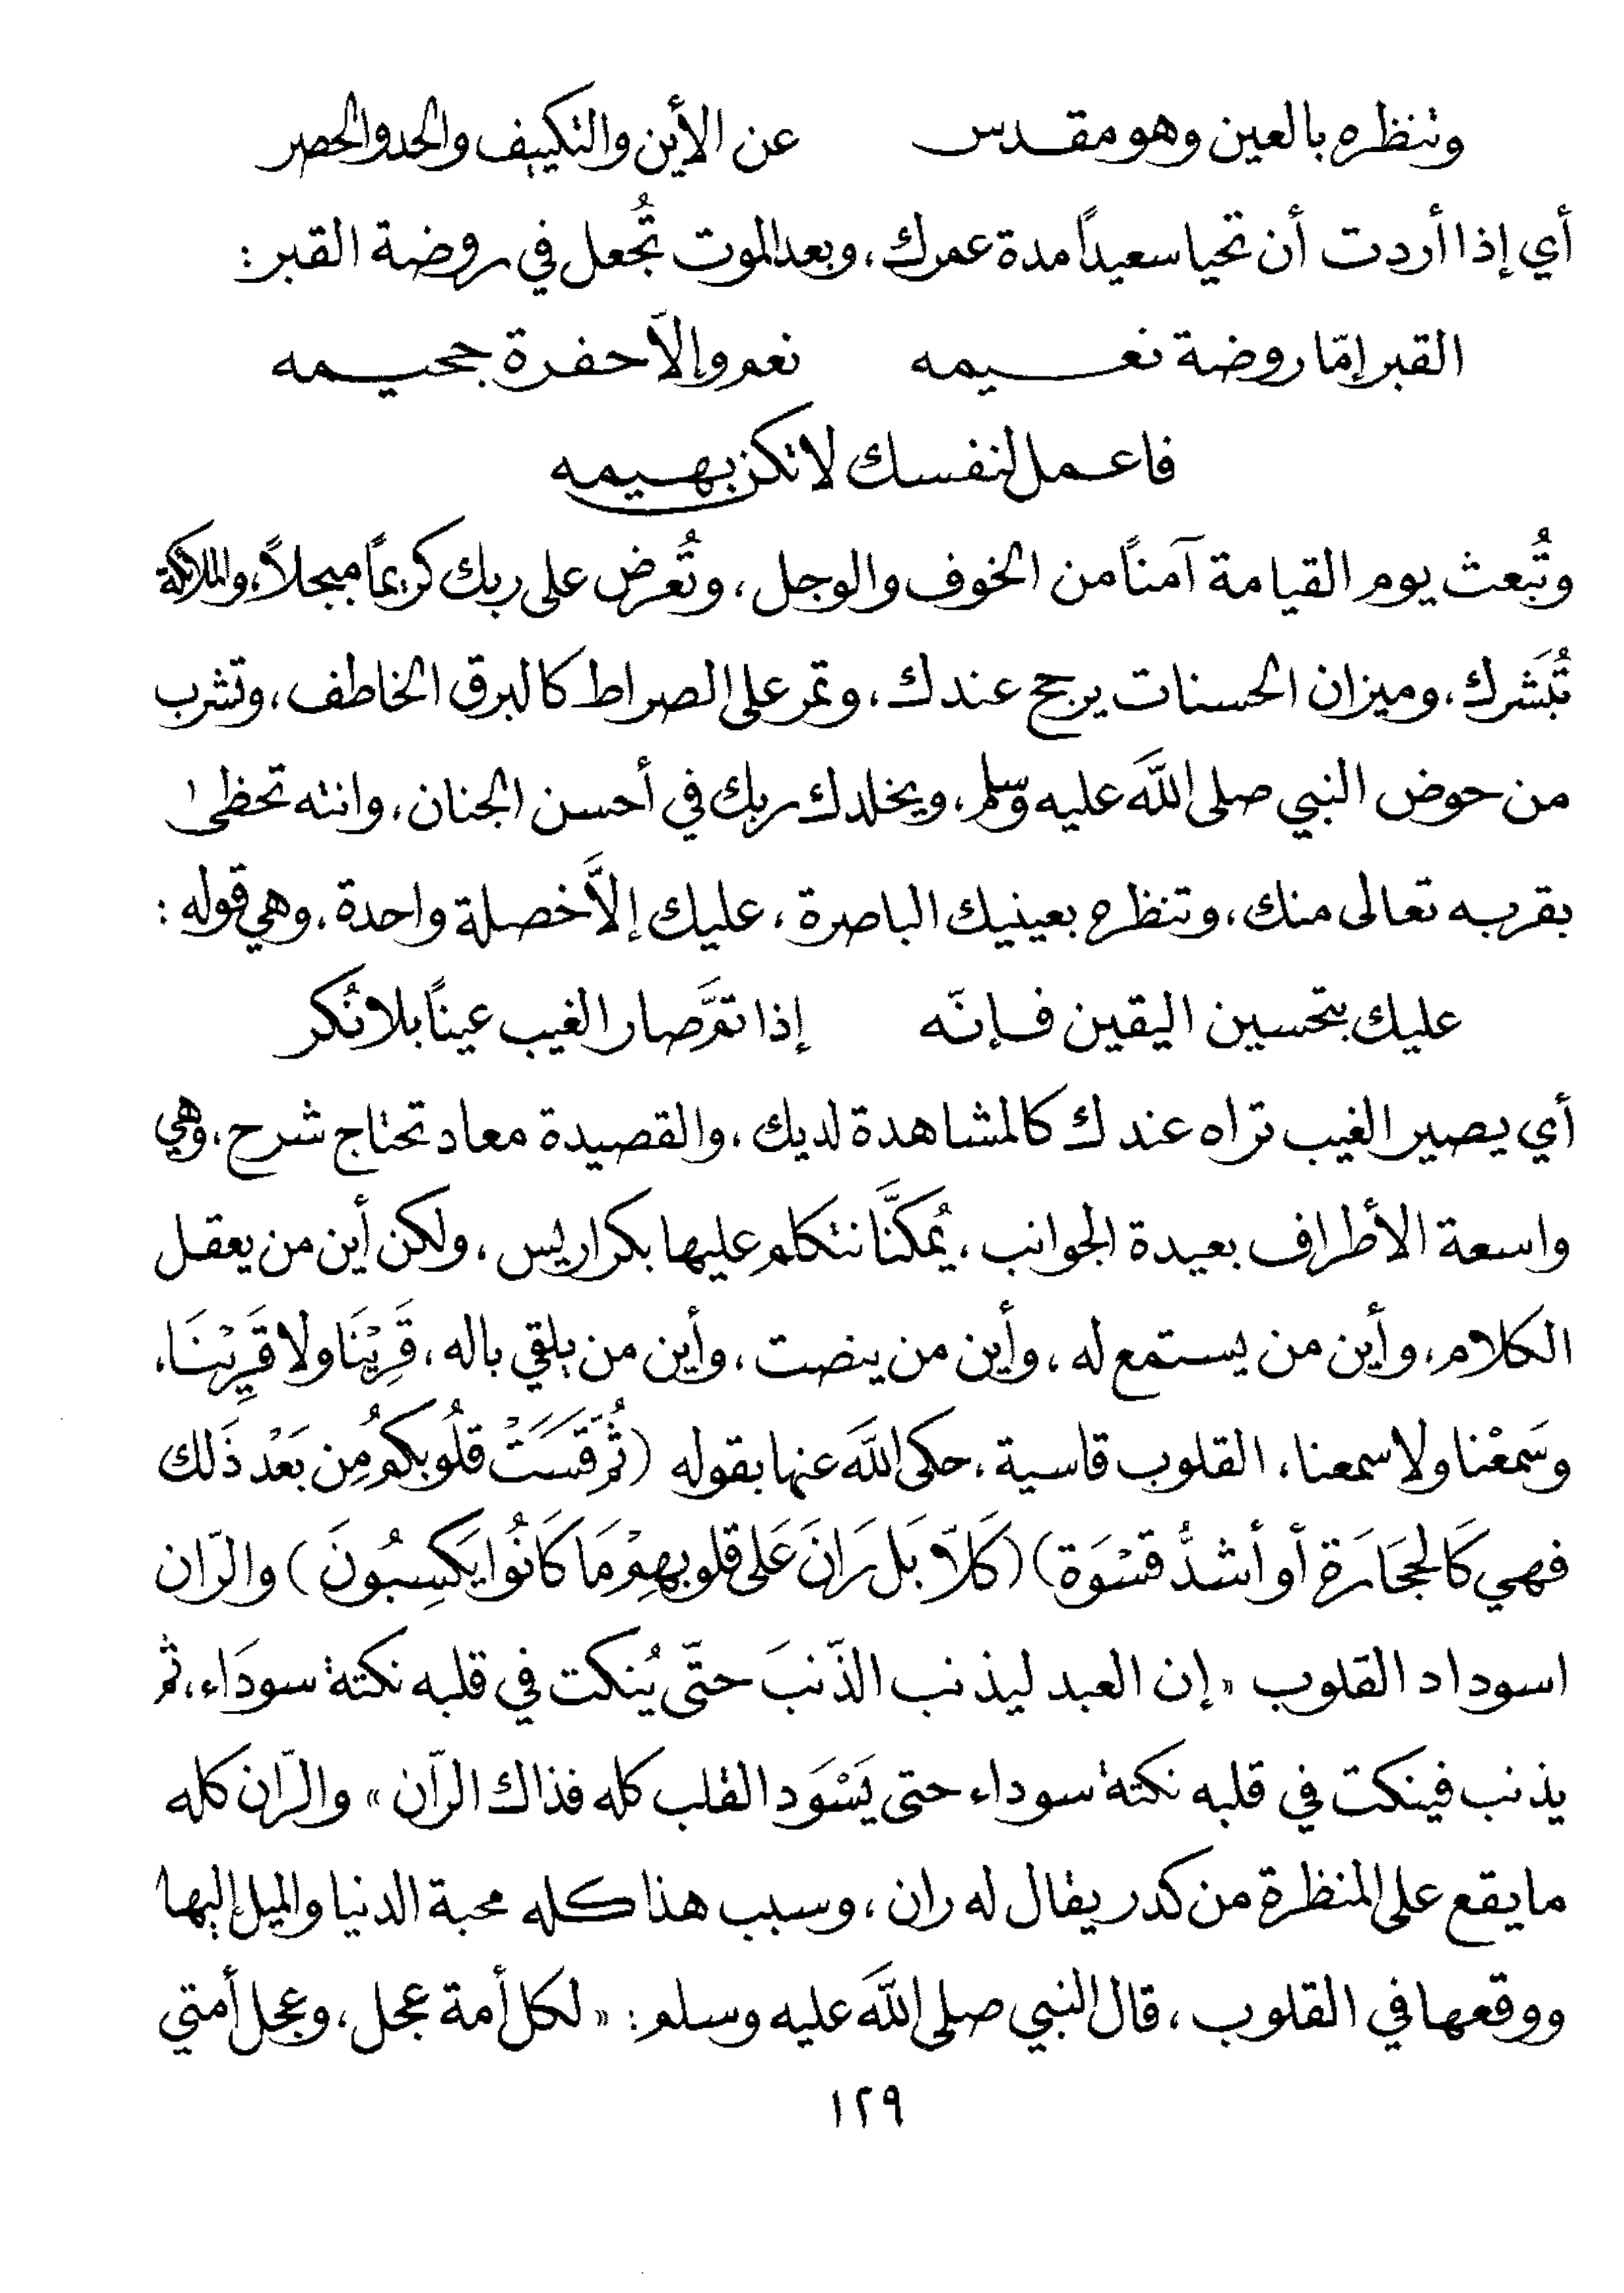 وتنظره بالعين وهو مقدس عن الأين والتكييف والحد والحصر
أي إذا أردت أن تحيا سعيداً مدة عمرك، وبعد الموت تُجعل في روضة القبر:
القبر إمّا روضة نعيمه نعم وإلاّ حفرة جحيمه
فاعمل لنفسك لا تكن بهيمه
وتُبعث يوم القيامة آمناً من الخوف والوجل، وتُعرض على ربك كريماً مبجلاً، والملائكة
تُبَشرك، وميزان الحسنات يرجح عندك، وتمر على الصراط كالبرق الخاطف، وتشرب
من حوض النبي صلى اللَّه عليه وسلم، ويخلدك ربك في أحسن الجنان، وانته تحظىٰ
بقربه تعالى منك، وتنظره بعينيك الباصرة، عليك إلاَّ خصلة واحدة. وهي قوله:
عليك بتحسين اليقين فإنّه إذا تمَّ صار الغيب عيناً بلا نُكر
أي يصير الغيب تراه عندك كالمشاهدة لديك، والقصيدة معاد تحتاج شرح، وهي
واسعة الأطراف بعيدة الجوانب، يُمكنَّا نتكلم عليها بكراريس، ولكن أين من يعقل
الكلام، وأين من يستمع له، وأين من ينصت، وأين من يلقي باله، قَرِيْنَا ولا قَرِيْنَا،
وسَمعْنا ولا سمعنا، القلوب قاسية، حكى اللَّه عنها بقوله (ثُمّ قَسَتْ قلُوبكمُ مِن بَعْد ذَلك
فهي كَالحجَارَة أو أشدُّ قسْوَة) (كَلاّ بَل رَانَ عَلى قلوبهِمْ مَا كَانُوا يَكسِبُونَ) والرّان
اسوداد القلوب «إن العبد ليذنب الذّنبَ حتّى يُنكت في قلبه نكتة سودَاء، ثم
يذنب فينكت في قلبه نكتة سوداء حتى يَسْوَد القلب كله فذاك الرّان» والرّان كله
ما يقع على المنظرة من كدر يقال له ران، وسبب هذا كله محبة الدنيا والميل إليها
ووقعها في القلوب، قال النبي صلى اللَّه عليه وسلم: «لكل أمة عجل، وعجل أمتي
١٢٩